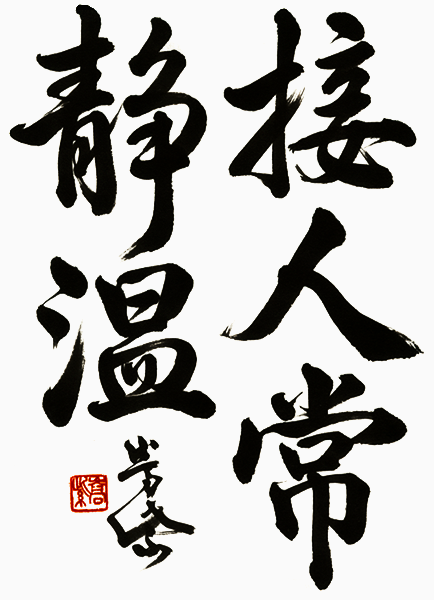 接人常
静温